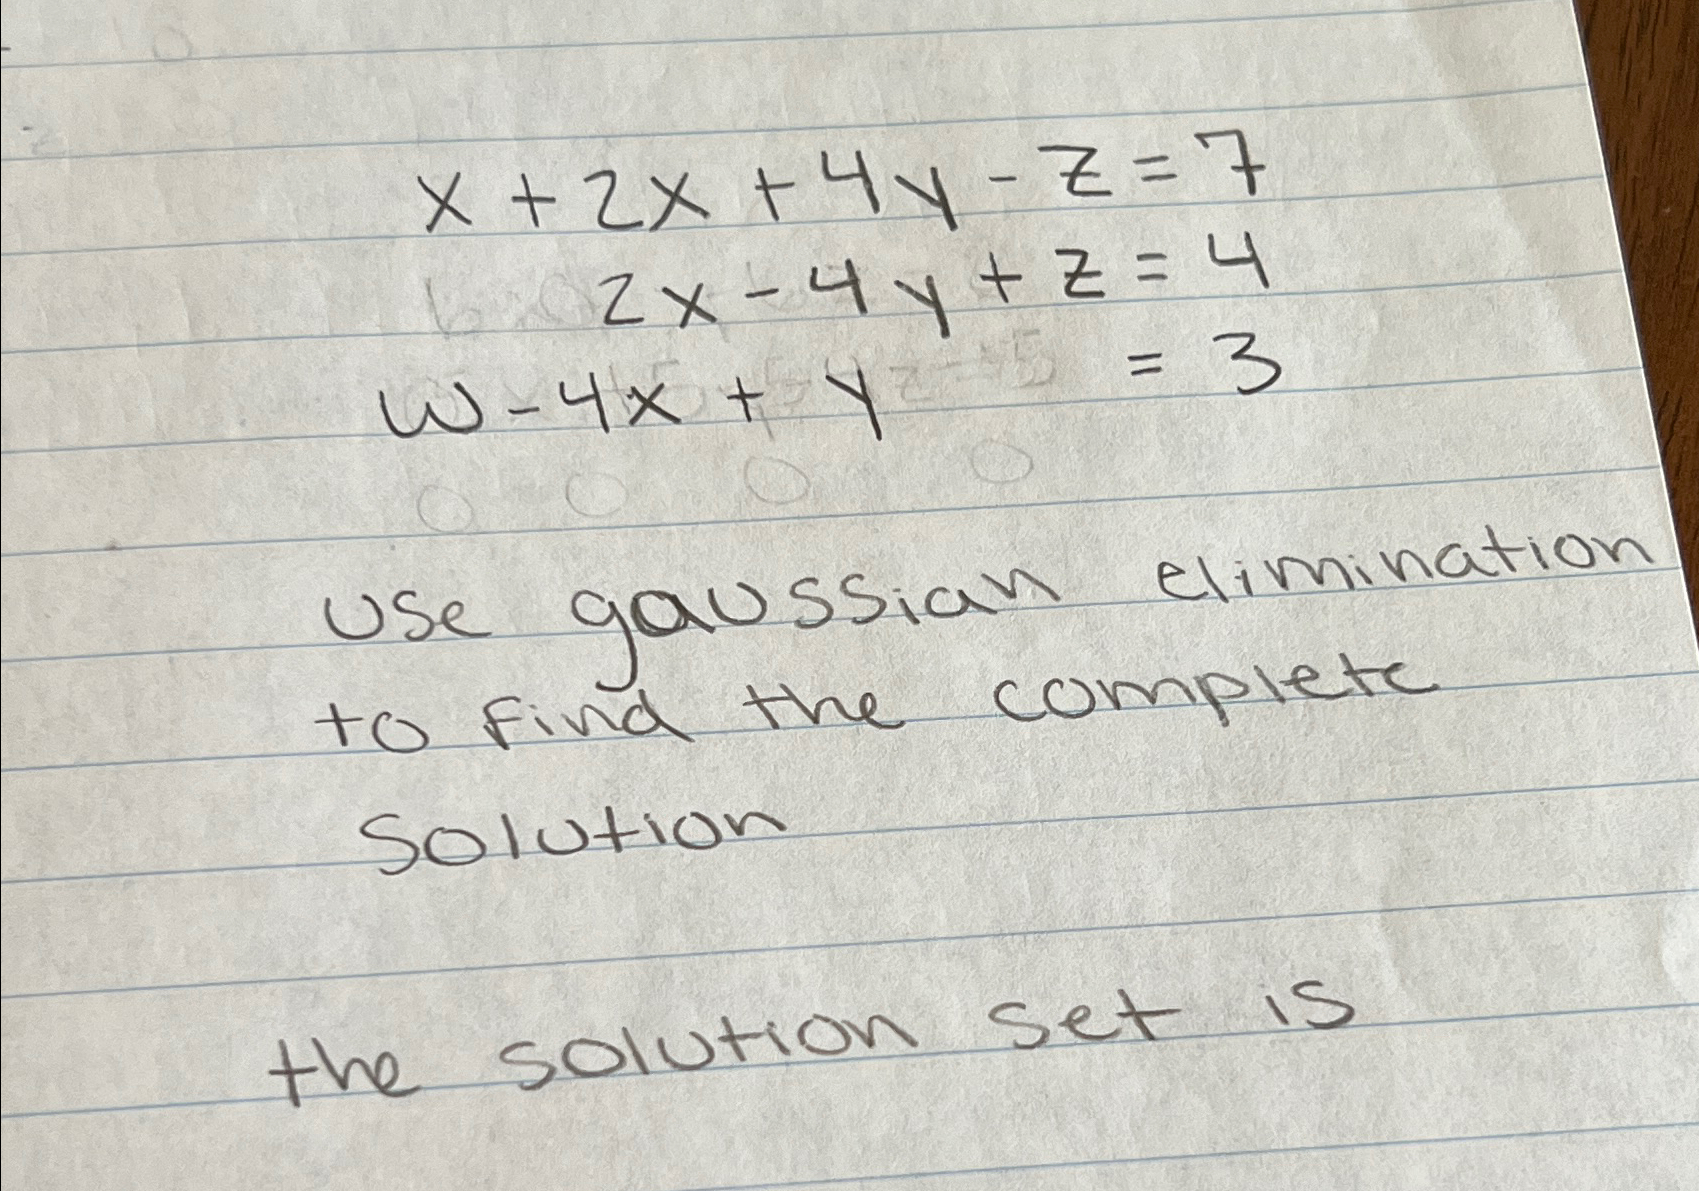 x + 2x + 4y - z = 7
2x - 4y + z = 4
w - 4x + y = 3
use gaussian elimination
to find the complete
solution
the solution set is